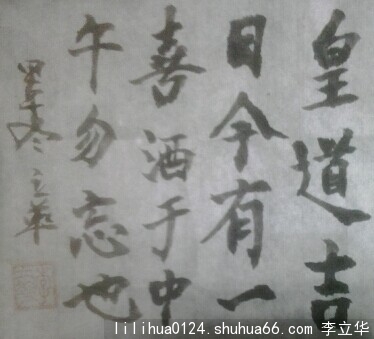 皇道吉
日今有一
喜酒于中
午勿忘也
立华
lilihua0124.shuhua66.com 李立华